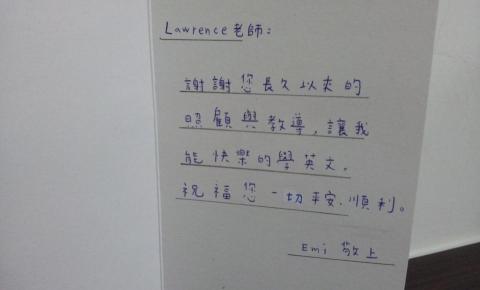 Lawrence老師:
謝謝您長久以來的
照顧與教導,讓我
能快樂的學英文,
祝福您一切平安、順利。
Emi 敬上